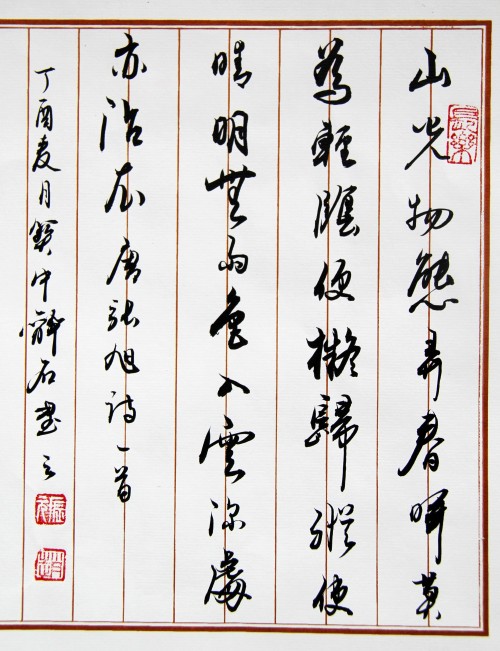 長樂
山光物態弄春暉莫
為輕陰便擬歸縱使
晴明無雨色入雲深處
亦沾衣 唐張旭詩一首
丁酉夏月 中醉石書之